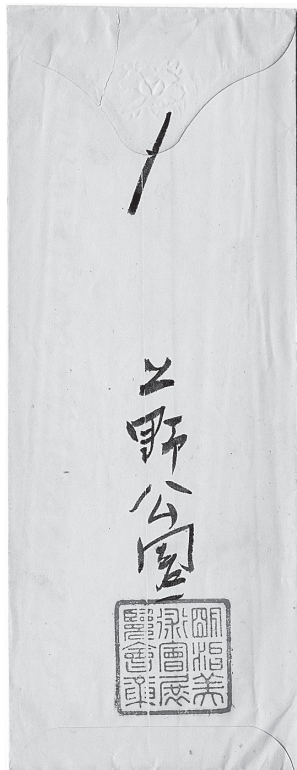 〆
上野公園
明治美
術會展
覽會